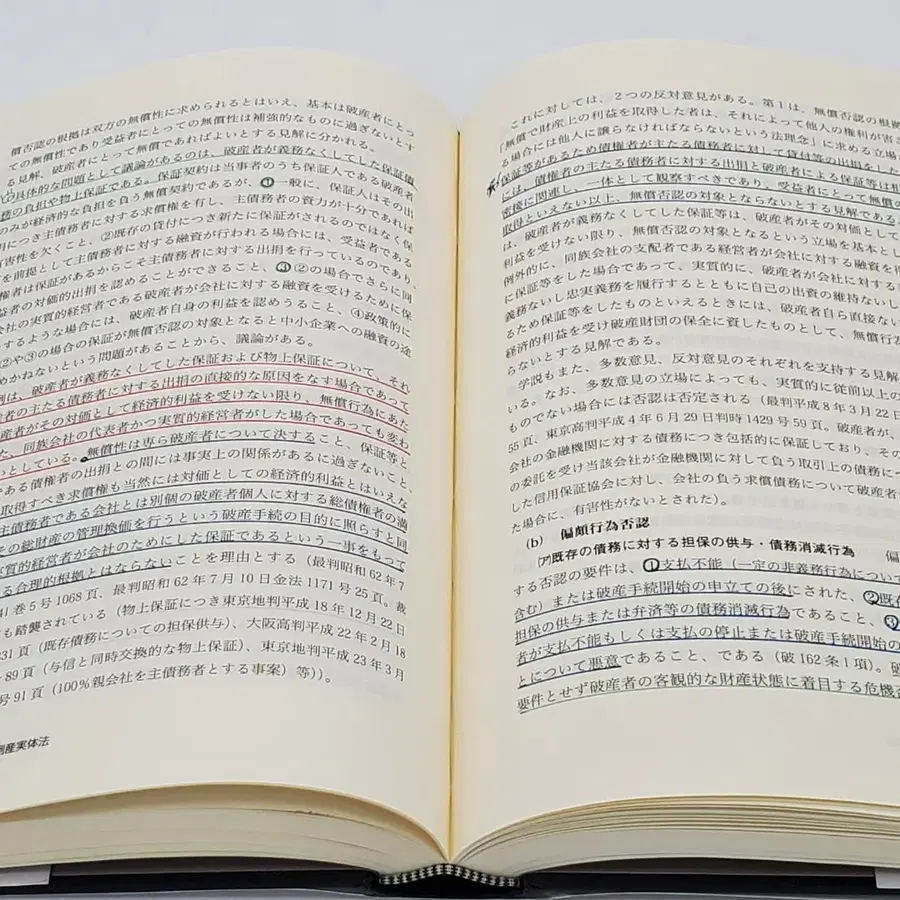 償否認の根拠は双方の無償性に求められるとはいえ、基本は破産者にとっ
ての無償性であり受益者にとっての無償性は補強的なものに過ぎないとす
る見解、破産者にとって無償であればよいとする見解に分かれる。
具体的な問題として議論があるのは、破産者が義務なくしてした保証債
務の負担や物上保証である。保証契約は当事者のうち保証人である破産者
のみが経済的な負担を負う無償契約であるが、①一般に、保証人はその出
捐につき主債務者に対する求償権を有し、主債務者の資力が十分であれば
有害性を欠くこと、②既存の貸付につき新たに保証がされるのではなく保
を前提として主債務者に対する融資が行われる場合には、受益者である
権者は保証があるからこそ主債務者に対する出捐を行っているのであり、
益者の対価的出捐を認めることができること、③②の場合でさらに同
会社の実質的経営者である破産者が会社に対する融資を受けるために保
するような場合には、破産者自身の利益を認めうること、④政策的に
②や③の場合の保証が無償否認の対象となると中小企業への融資の途
めかねないという問題があることから、議論がある。
例は、破産者が義務なくしてした保証および物上保証について、それ
者の主たる債務者に対する出捐の直接的な原因をなす場合であって
産者がその対価として経済的利益を受けない限り、無償行為にあた
た、同族会社の代表者かつ実質的経営者がした場合であっても変わ
っとしている。無償性は専ら破産者について決すること、保証等と
である債権者の出捐との間には事実上の関係があるに過ぎないこと、
取得すべき求償権も当然には対価としての経済的利益とはいえな
主債務者である会社とは別個の破産者個人に対する総債権者の満
その総財産の管理換価を行うという破産手続の目的に照らすと同
実質的経営者が会社のためにした保証であるという一事をもって
る合理的根拠とはならないことを理由とする（最判昭和62年7
41巻5号1068頁、最判昭和62年7月10日金法1171号25頁。裁
も踏襲されている（物上保証につき東京地判平成18年12月22日
931頁（既存債務についての担保供与）、大阪高判平成22年2月18
89頁（与信と同時交換的な物上保証）、東京地判平成23年3月
号91頁（100%親会社を主債務者とする事案）等））。
倒産実体法
これに対しては、2つの反対意見がある。第1は、無償否認の根拠
「無償で財産上の利益を取得した者は、それによって他人の権利が害さ
る場合には他人に譲らなければならないという法理念」に求める立場
保証等があるため債権者が主たる債務者に対して貸付等の出捐をした
には、債権者の主たる債務者に対する出捐と破産者による保証等は相
密接に関連し、一体として観察すべきであり、受益者にとって無償の
取得といえない以上、無償否認の対象とならないとする見解である
は、破産者が義務なくしてした保証等は、破産者がその対価として
利益を受けない限り、無償否認の対象となるという立場を基本とし
例外的に、同族会社の支配者である経営者が会社に対する融資を得
に保証等をした場合であって、実質的に、破産者が会社に対する
義務ないし忠実義務を履行するとともに自己の出資の維持ないし
るため保証等をしたものといえるときには、破産者自ら直接ない
経済的利益を受け破産財団の保全に資したものとして、無償行為
らないとする見解である。
学説もまた、多数意見、反対意見のそれぞれを支持する見解
いる。なお、多数意見の立場によっても、実質的に従前以上の
ものでない場合には否認は否定される（最判平成8年3月22日
55頁、東京高判平成4年6月29日判時1429号59頁。破産者が、
会社の金融機関に対する債務につき包括的に保証しており、その
の委託を受け当該会社が金融機関に対して負う取引上の債務に
した信用保証協会に対し、会社の負う求償債務について破産者
た場合に、有害性がないとされた）。
(b) 偏頗行為否認
(ア)既存の債務に対する担保の供与・債務消滅行為 偏
する否認の要件は、①支払不能（一定の非義務行為について
含む）または破産手続開始の申立ての後にされた、②既存
担保の供与または弁済等の債務消滅行為であること、③
者が支払不能もしくは支払の停止または破産手続開始の
とについて悪意であること、である（破162条1項）。破
要件とせず破産者の客観的な財産状態に着目する危機否